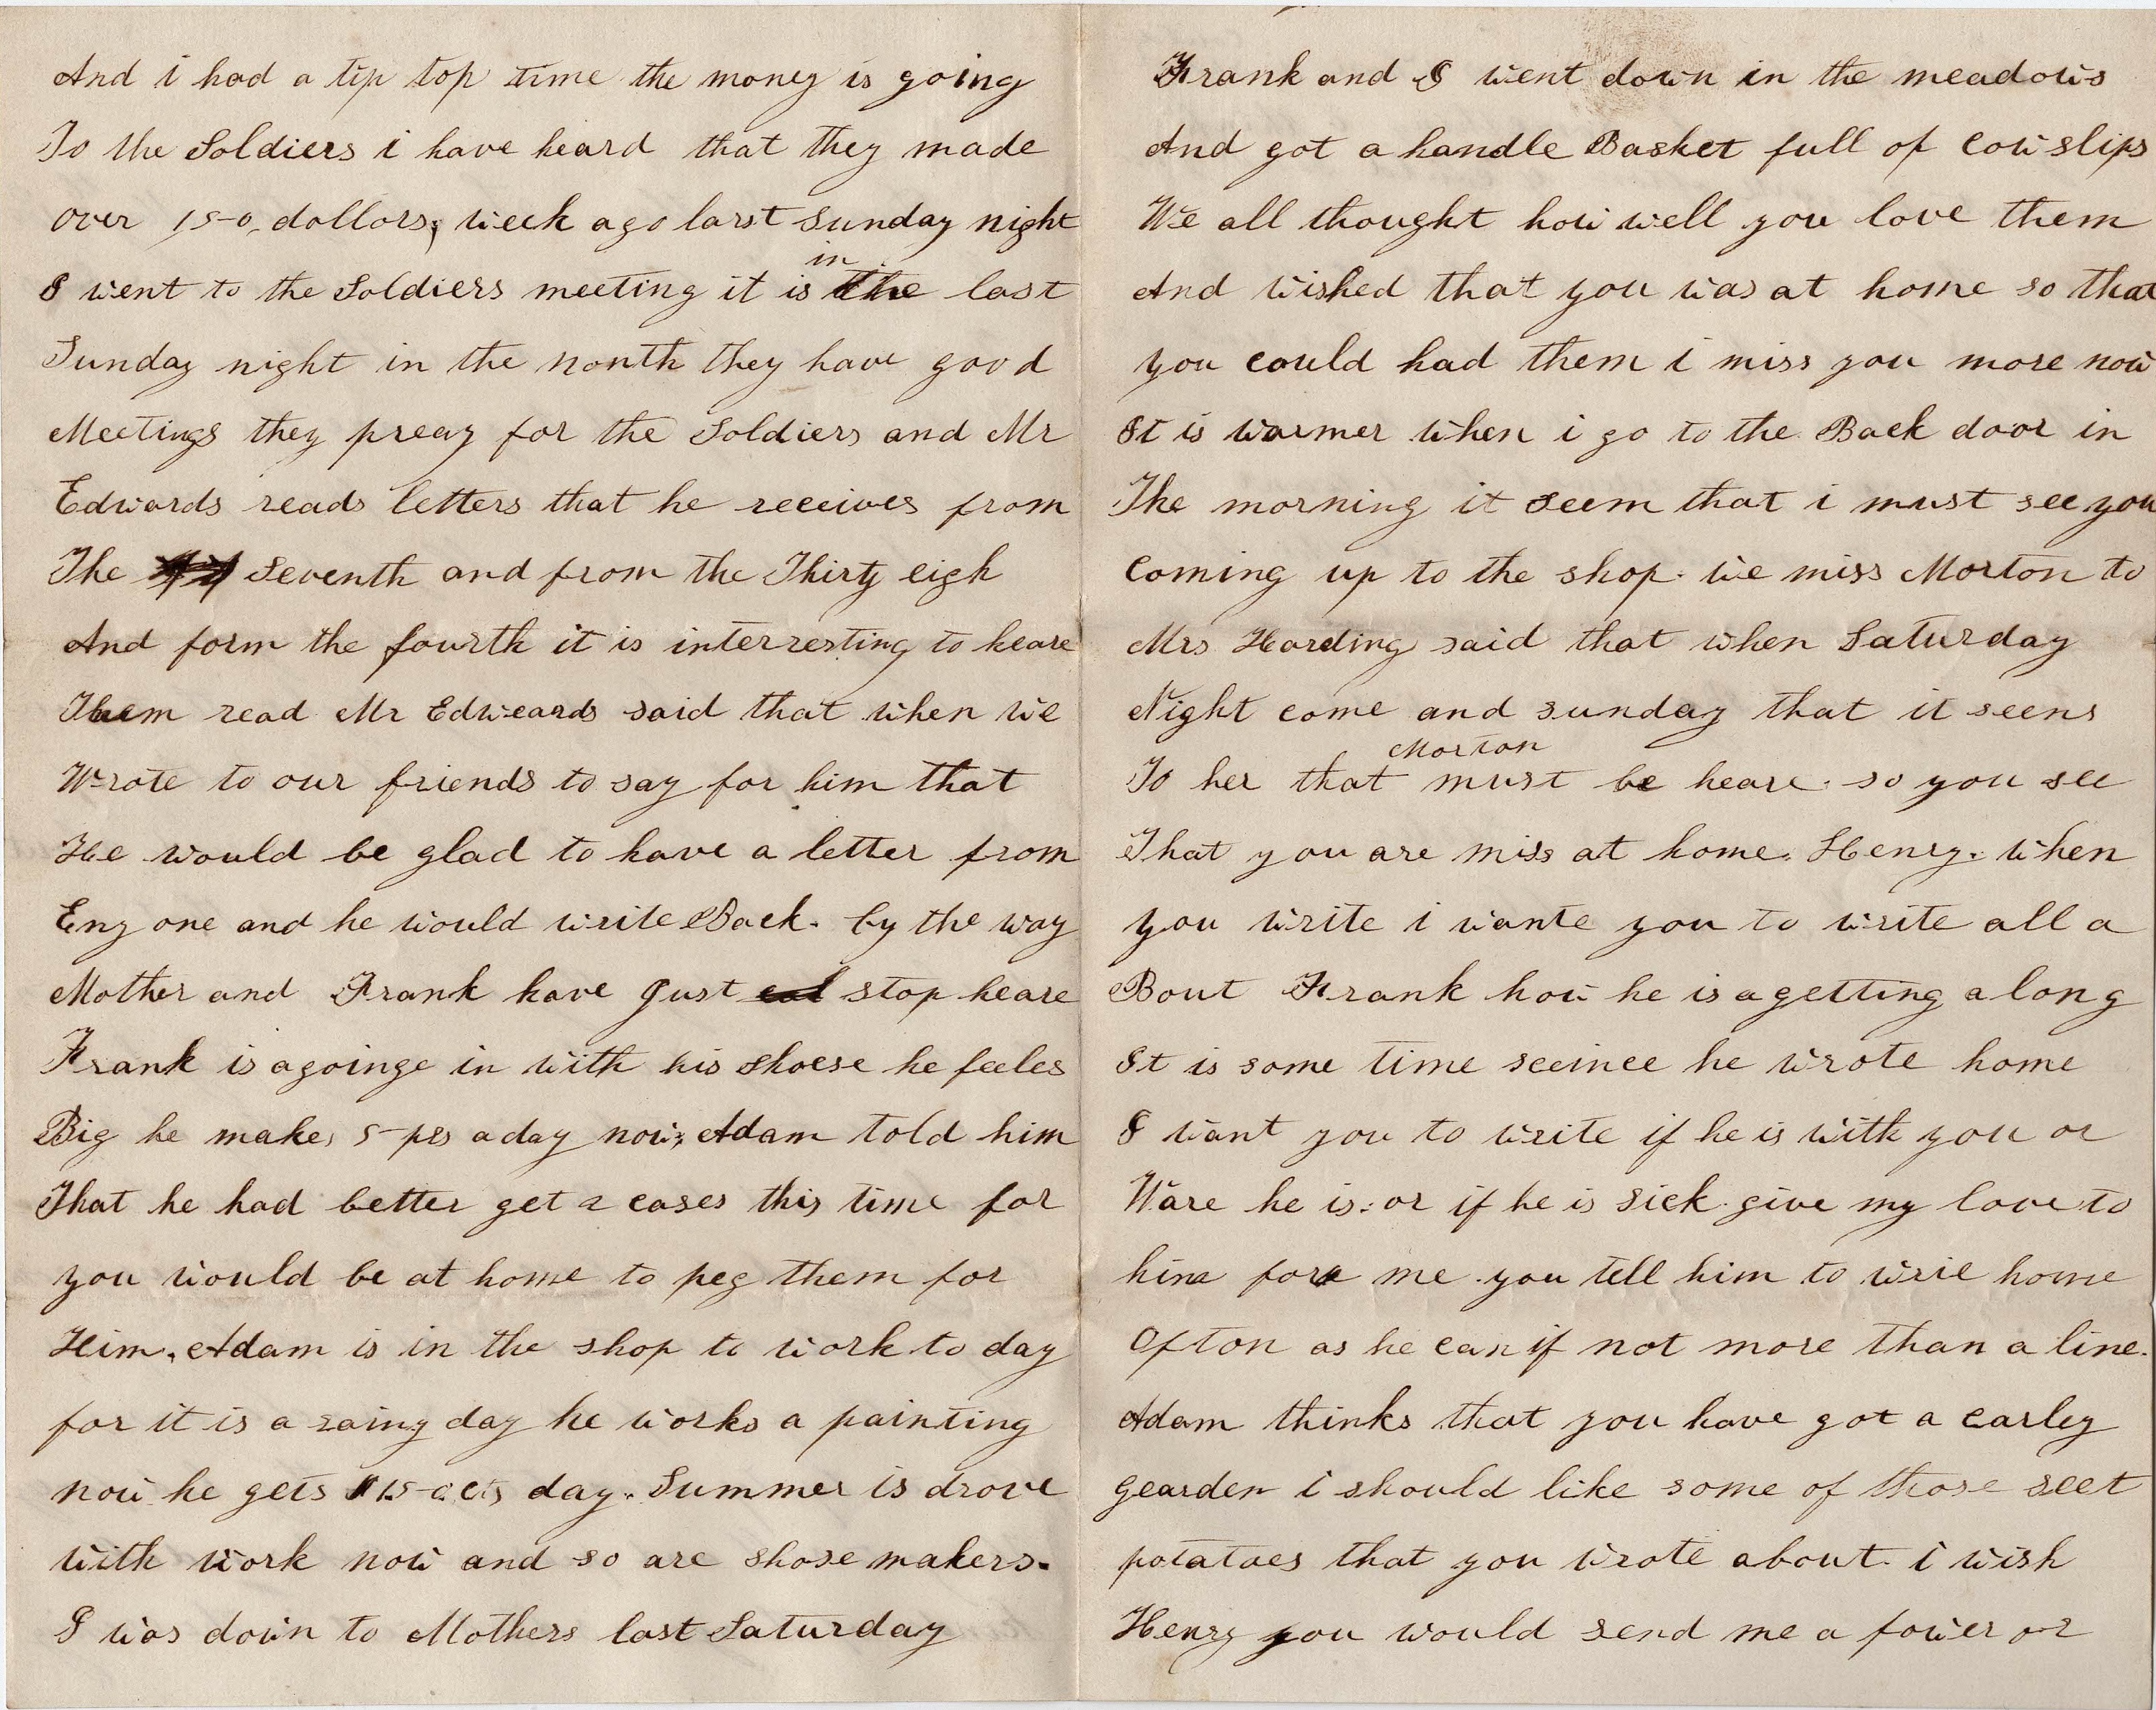 And i had a tip top time the money is going
To the Soldiers i have heard that they made
over 150, dollors, week ago larst Sunday night
I went to the Soldiers meeting it is in the last
Sunday night in the nonth they have good
Meetings they preay for the Soldiers and Mr
Edwards reads letters that he receives from
The Seventh and from the Thirty eigh
And form the fourth it is interresting to heare
Them read Mr Edweards said that when we
Wrote to our friends to say for him that
He would be glad to have a letter from
Eny one and he would write Back. by the way
Mother and Frank have gust stop heare
Frank is agoinge in with his shoese he feeles
Big he makes 5 prs a day now, Adam told him
That he had better get 2 cases this time for
you would be at home to peg them for
Him, Adam is in the shop to work to day
for it is a rainy day he works a painting
now he gets day. Summer is drove
with work now and so are shose makers.
I was down to Mothers last Saturday
Frank and I went down in the meadows
And got a handle Basket full of cowslips
We all thought how well you love them
And wished that you was at home so that
you could had them i miss you more now
It is warmer when i go to the Back door in
The morning it seem that i must see you
coming up to the shop. we miss Morton to
Mrs Harding said that when Saturday
Night come and sunday that it seens
To her that Morton must be heare. so you see
That you are miss at home. Henry. when
you write i wante you to write all a
Bout Frank how he is a getting a long
It is some time seeince he wrote home
I want you to write if he is with you or
Ware he is: or if he is sick. give my love to
him fore me. you tell him to wrie home
Ofton as he can if not more than a line.
Adam thinks that you have got a earley
gearden i should like some of those seet
potatoes that you wrote about. i wish
Henry you would send me a fower or